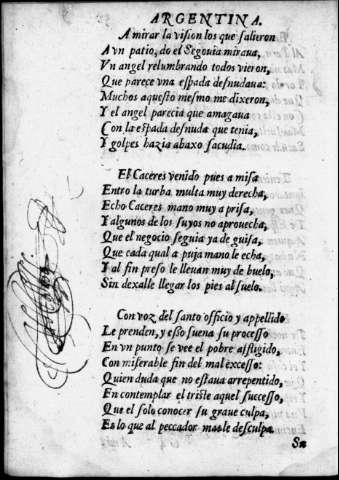 ARGENTINA.
A mirar la vision los que salieron
A vn patio, do el Segouia miraua,
Vn angel relumbrando todos vieron,
Que parece vna espada desnudaua:
Muchos aquesto mesmo me dixeron,
Y el angel parecia que amagaua
Con la espada desnuda que tenia,
Y golpes hazia abaxo sacudia.
El Caceres venido pues a misa
Entro la turba multa muy derecha,
Echo Caceres mano muy a prisa,
Y algunos de los suyos no aprouecha,
Que el negocio seguia ya de guisa,
Que cada qual a puja mano le echa,
Y al fin preso le lleuan muy de buelo,
Sin dexalle llegar los pies al suelo.
Con voz del santo officio y appellido
Le prenden, y esso suena su processo
En vn punto se vee el pobre affligido,
Con miserable fin del mal excesso:
Quien duda que no estaua arrepentido,
En contemplar el triste aquel successo,
Que el solo conocer su graue culpa,
Es lo que al peccador mas le desculpa.
Su